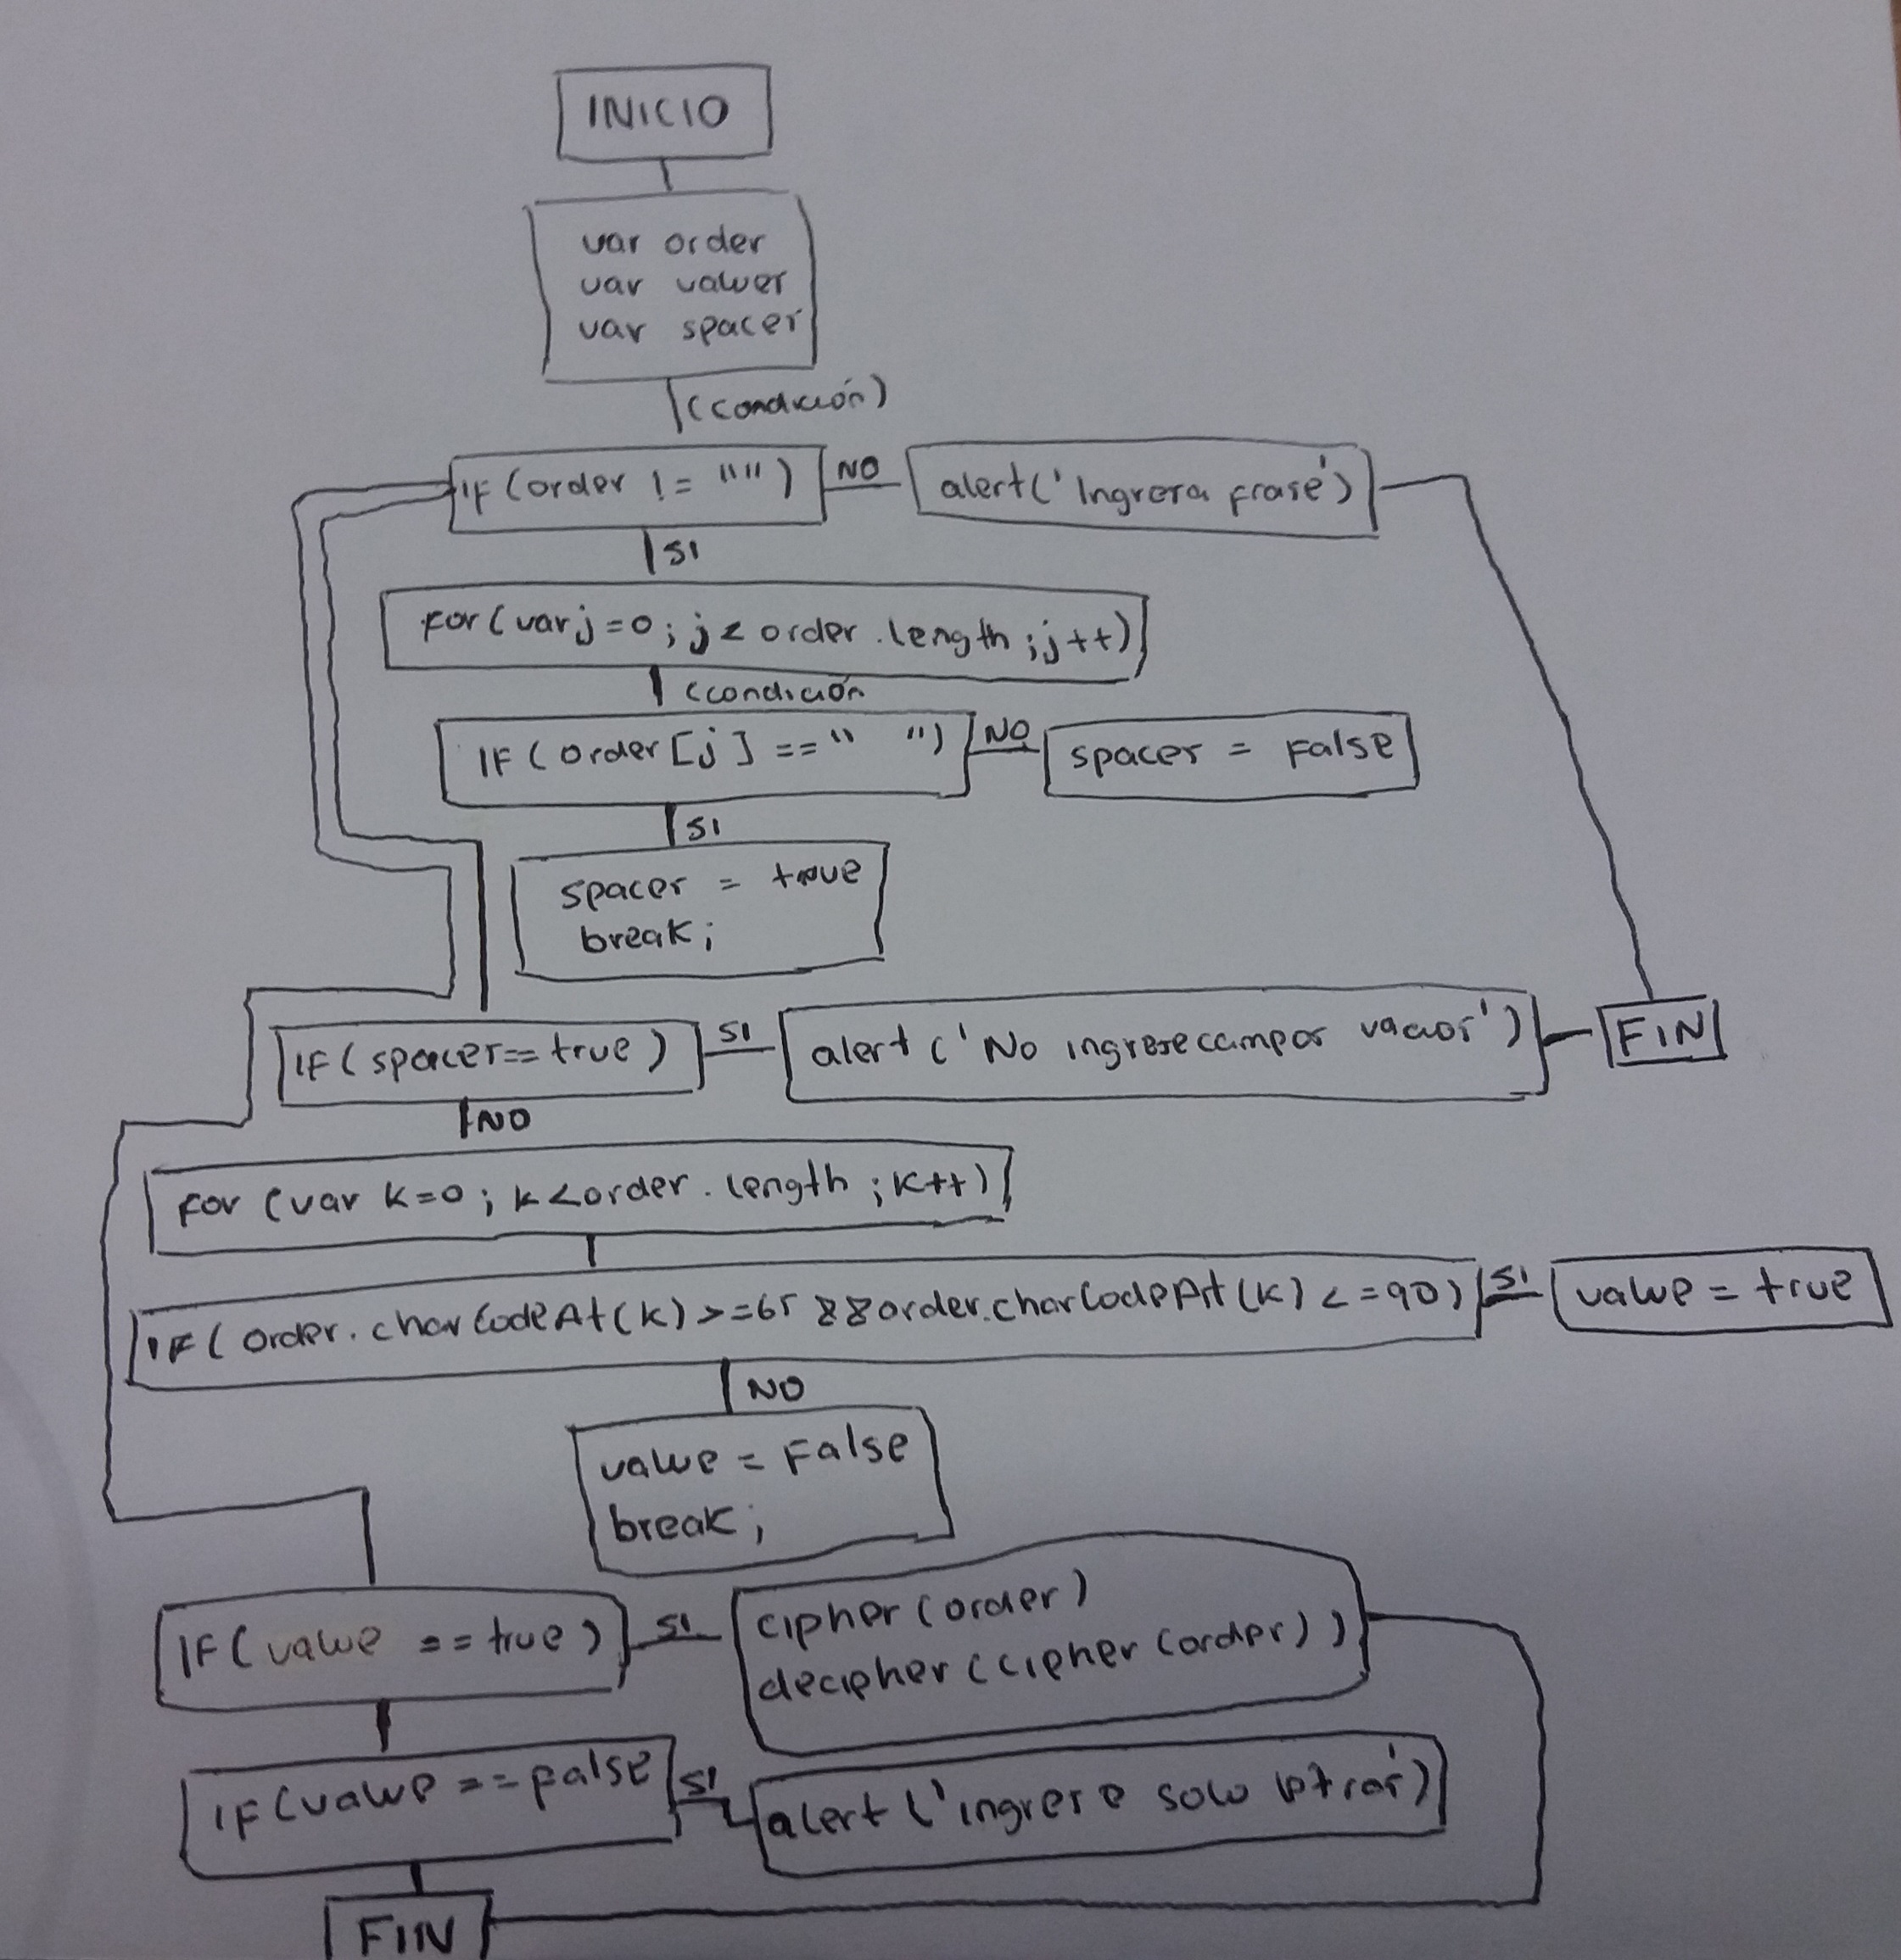 INICIO
var order
var valuer
var spacer
(condición)
IF (order != "")
NO
alert('Ingresa frase')
SI
For (var j=0; j< order.length; j++)
(condición
IF (order [j] == " ")
NO
spacer = False
SI
spacer = true
break;
IF (spacer == true)
SI
alert ('No ingrese campos vacios')
FIN
NO
For (var k=0; k<order.length; k++)
IF (order.charCodeAt(k) >=65 &&order.charCodeAt(k) <=90)
SI
value = true
NO
value = False
break;
IF (value == true)
SI
cipher (order)
decipher (cipher (order))
IF (value == false
SI
alert ('ingrese solo letras')
FIN